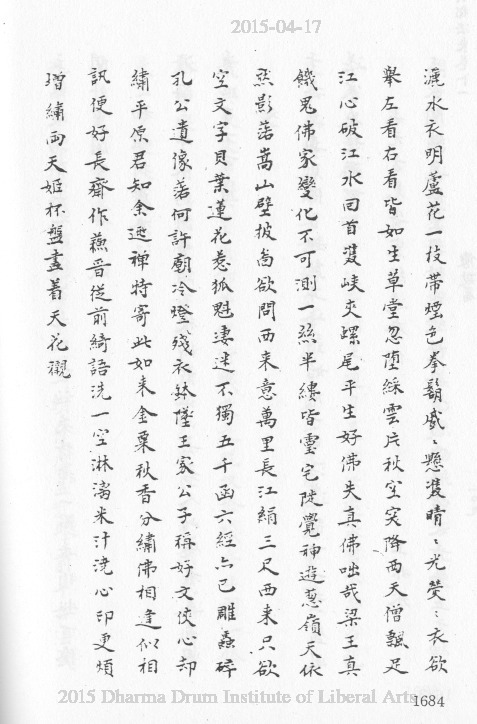 2015-04-17
灑水衣明蘆花一枝帶煙色拳鬍戚〻懸雙睛〻光熒〻衣欲
舉左看右看皆如生草堂忽墮綵雲片秋空突降西天僧飄足
江心破江水回首雙峽夾螺尾平生好佛失真佛咄哉梁王真
餓鬼佛家變化不可測一絲半縷皆靈宅陡覺神遊蔥嶺天依
然影落嵩山壁披向欲問西来意萬里長江絹三尺西来只欲
空文字貝葉蓮花惹狐魁淒迷不獨五千函六經亦已雕蟲碎
孔公遺像落何許廟冷燈殘衣鉢墜王家公子稱好文俠心却
繡平原君知余逃禪特寄此如来金粟秋香分繡佛相逢似相
訊便好長齋作蘓晋従前綺語洗一空淋漓米汁澆心印更煩
增繡両天姬杯盤盡着天花襯
2015 Dharma Drum Institute of Liberal Arts
1684